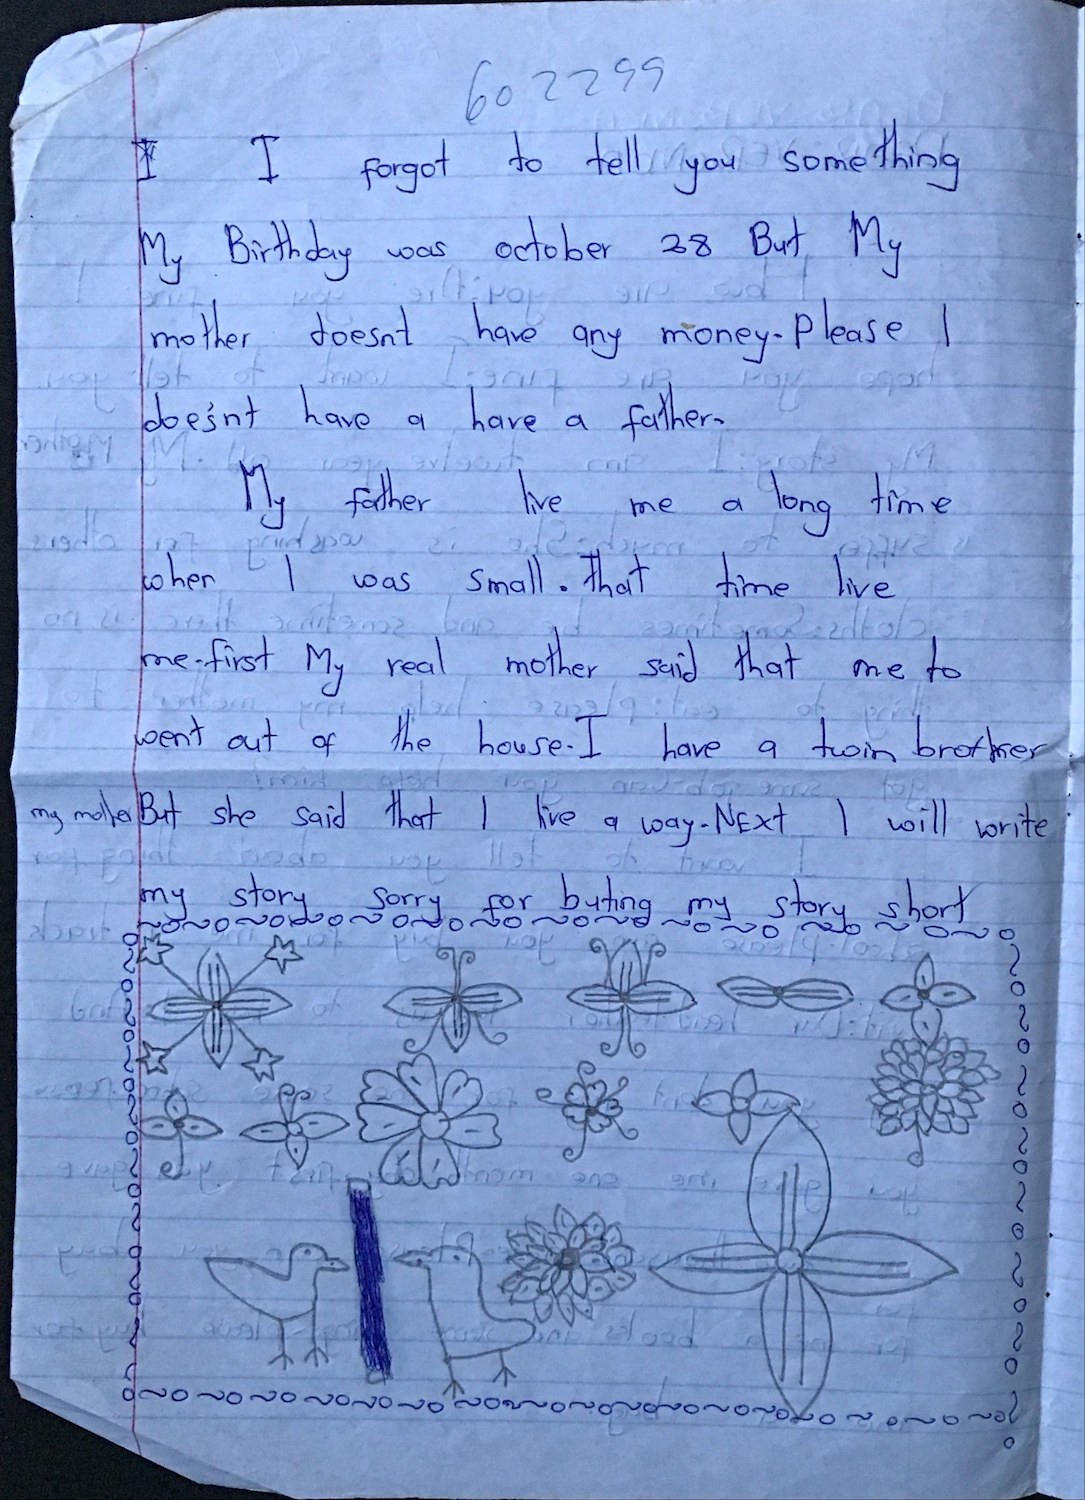 602299
I I forgot to tell you something
My Birthday was october 28 But My
mother doesnt have any money-Please I
doesńt have a have a father.
My father live me a long time
when I was small. that time live
me-first My real mother said that me to
went out of the house-I have a twin brother
my mother But she said that I live a way-NExt I will write
my story sorry for buting my story short